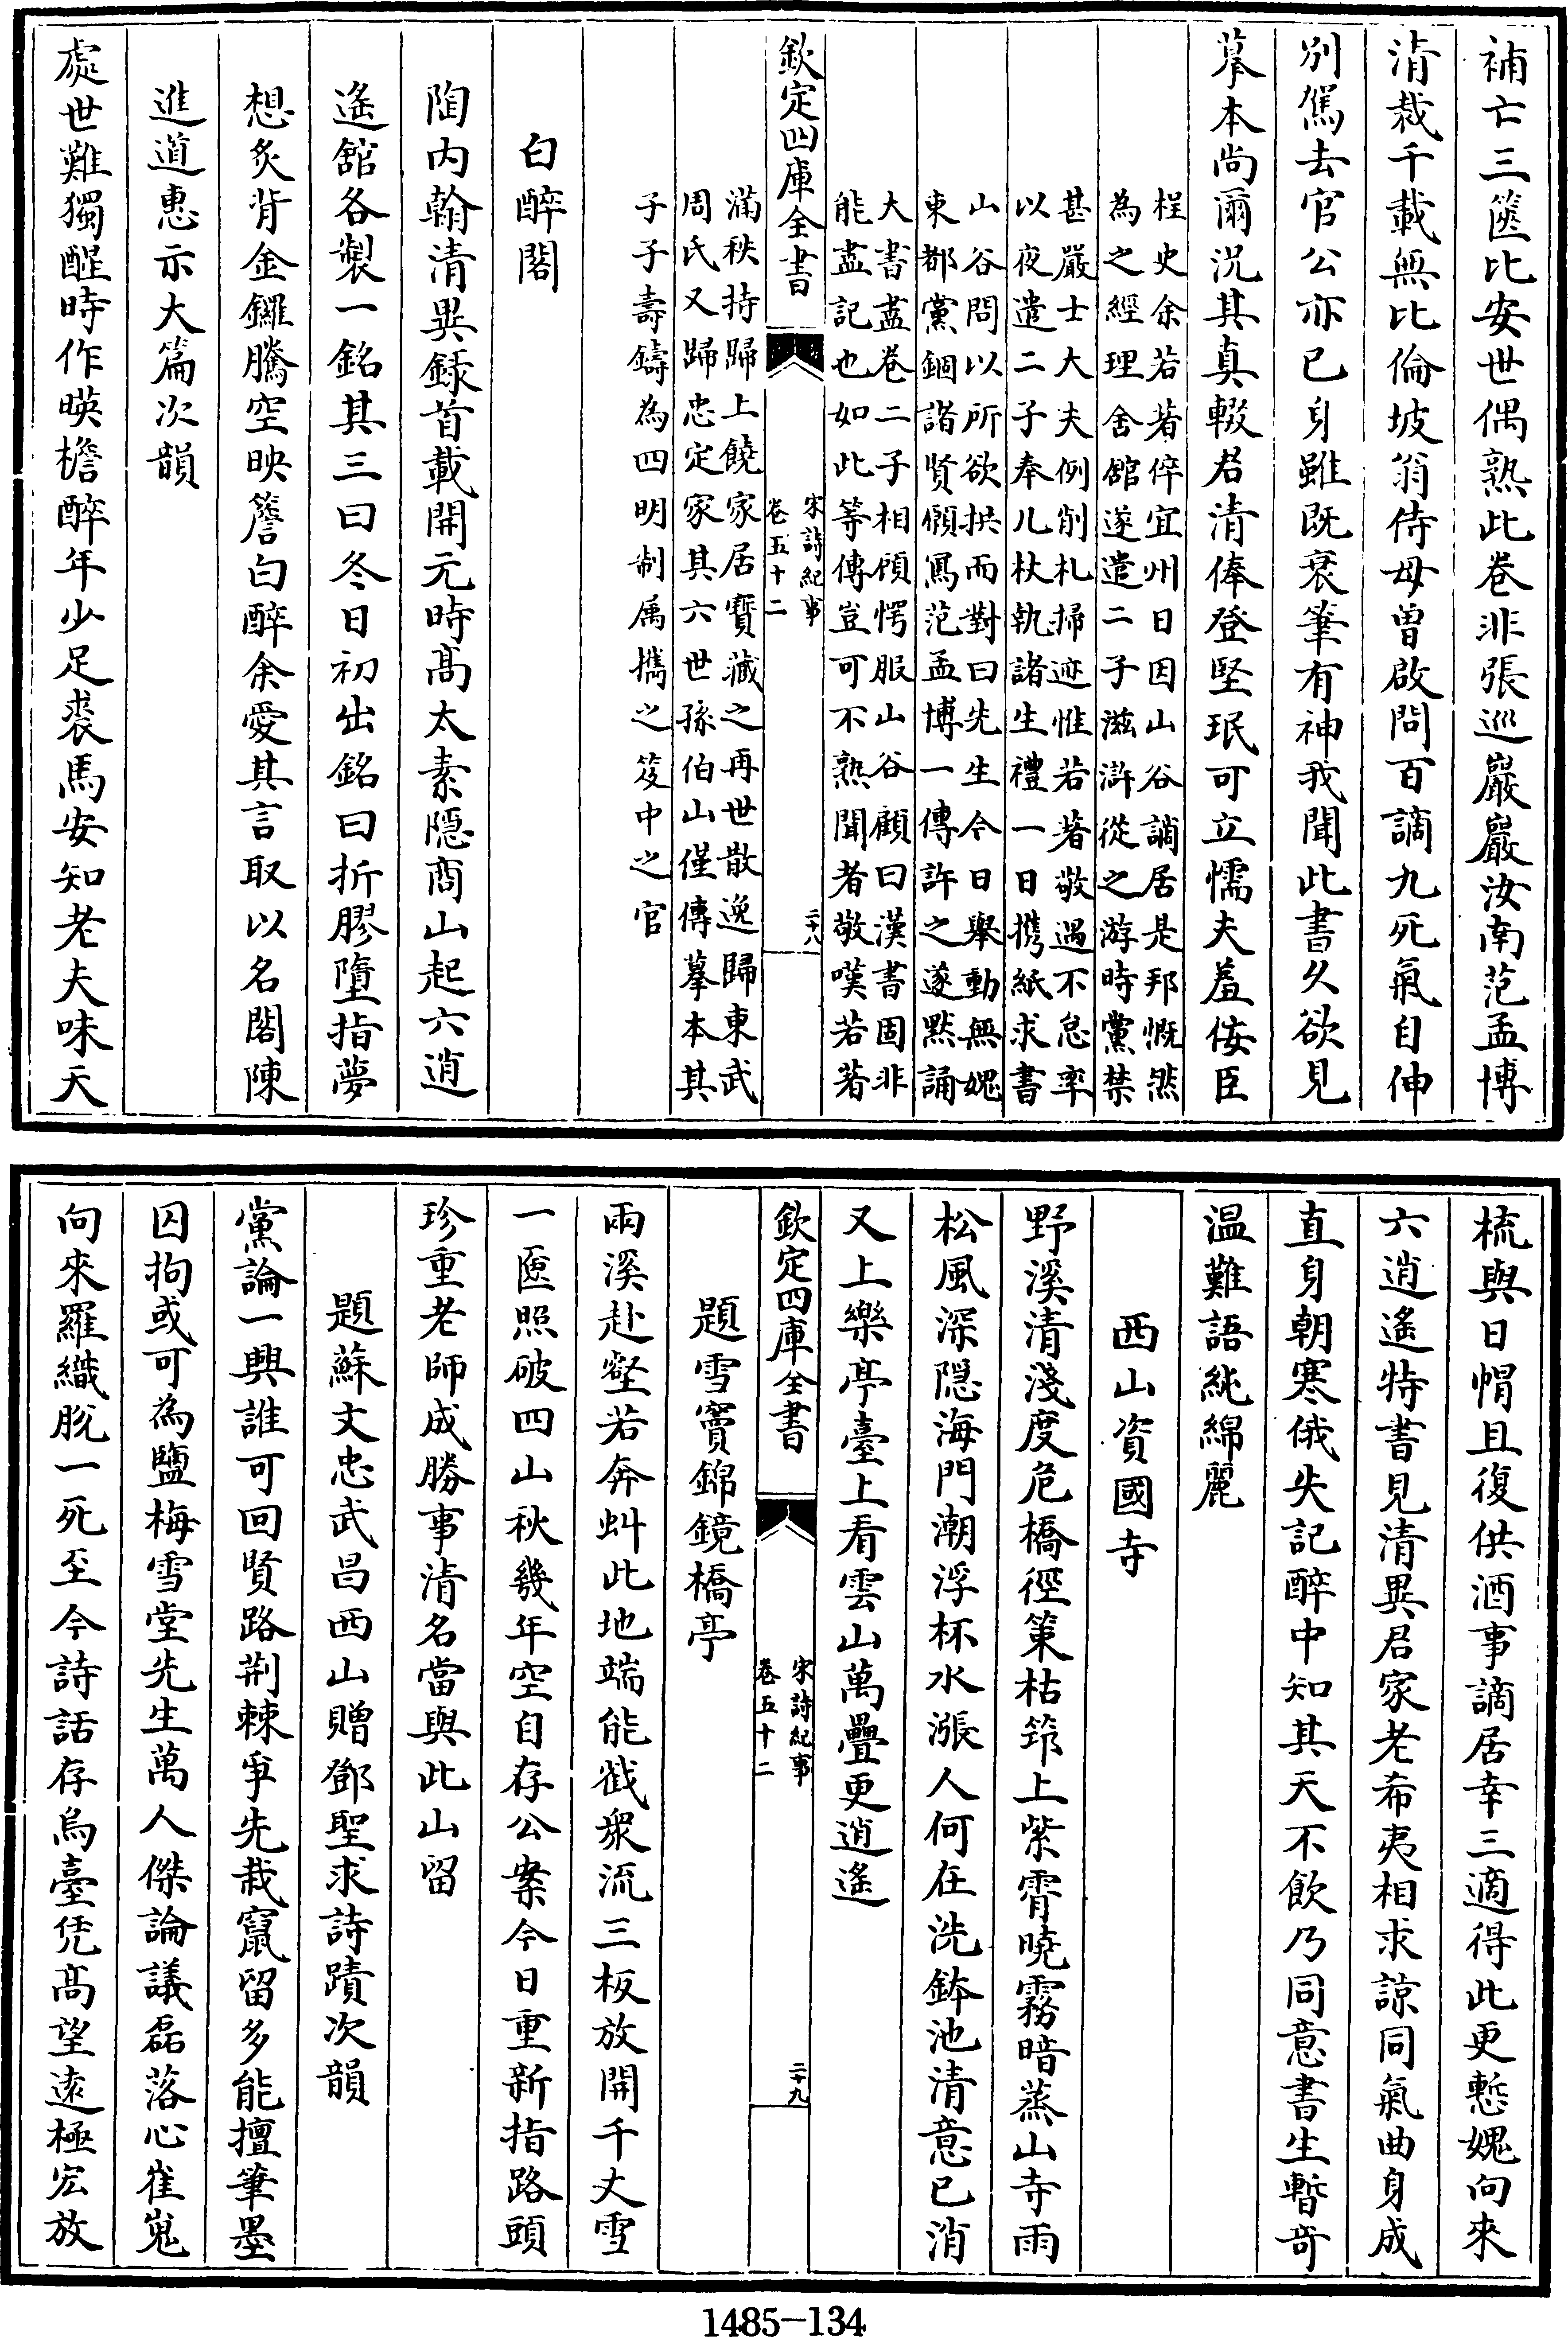 補亡三篋比安世偶熟此卷非張巡巖巖汝南范孟博
清裁千載無比倫坡翁侍母曾啟問百謫九死氣自伸
別駕去官公亦已身雖既衰筆有神我聞此書久欲見
摹本尚爾況其真輟君清俸登堅珉可立懦夫羞佞臣
桯史余若著倅宜州日因山谷謫居是邦慨然
為之經理舍館遂遣二子滋滸從之游時黨禁
甚嚴士大夫例削札掃迹惟若著敬遇不怠率
以夜遣二子奉几杖執諸生禮一日携紙求書
山谷問以所欲拱而對曰先生今日舉動無媿
東都黨錮諸賢願寫范孟博一傳許之遂默誦
大書盡卷二子相顧愕服山谷顧曰漢書固非
能盡記也如此等傳豈可不熟聞者敬嘆若著
欽定四庫全書
宋詩紀事
卷五十二
二十八
滿秩持歸上饒家居寶藏之再世散逸歸東武
周氏又歸忠定家其六世孫伯山僅傳摹本其
子子壽鑄為四明制属攜之笈中之官
白醉閣
陶内翰清異錄首載開元時髙太素隱商山起六逍
遙館各製一銘其三曰冬日初出銘曰折膠墮指夢
想炙背金鑼騰空映簷白醉余愛其言取以名閣陳
進道惠示大篇次韻
處世難獨醒時作暎檐醉年少足裘馬安知老夫味天
梳與日㡌且復供酒事謫居幸三適得此更慙媿向來
六逍遙特書見清異君家老希夷相求諒同氣曲身成
直身朝寒俄失記醉中知其天不飲乃同意書生暫奇
温難語純綿麗
西山資國寺
野溪清淺度危橋徑策枯筇上紫霄曉霧暗蒸山寺雨
松風深隠海門潮浮杯水漲人何在洗鉢池清意已消
又上樂亭臺上看雲山萬疊更逍遙
欽定四庫全書
宋詩紀事
卷五十二
二十九
題雪竇錦鏡橋亭
兩溪赴壑若奔虯此地端能截衆流三板放開千丈雪
一匳照破四山秋幾年空自存公案今日重新指路頭
珍重老師成勝事清名當與此山留
題蘇文忠武昌西山贈鄧聖求詩蹟次韻
黨論一興誰可回賢路荆棘爭先栽竄留多能擅筆墨
囚拘或可為鹽梅雪堂先生萬人傑論議磊落心崔嵬
向來羅織脫一死至今詩話存烏臺凭髙望遠極宏放
1485-134